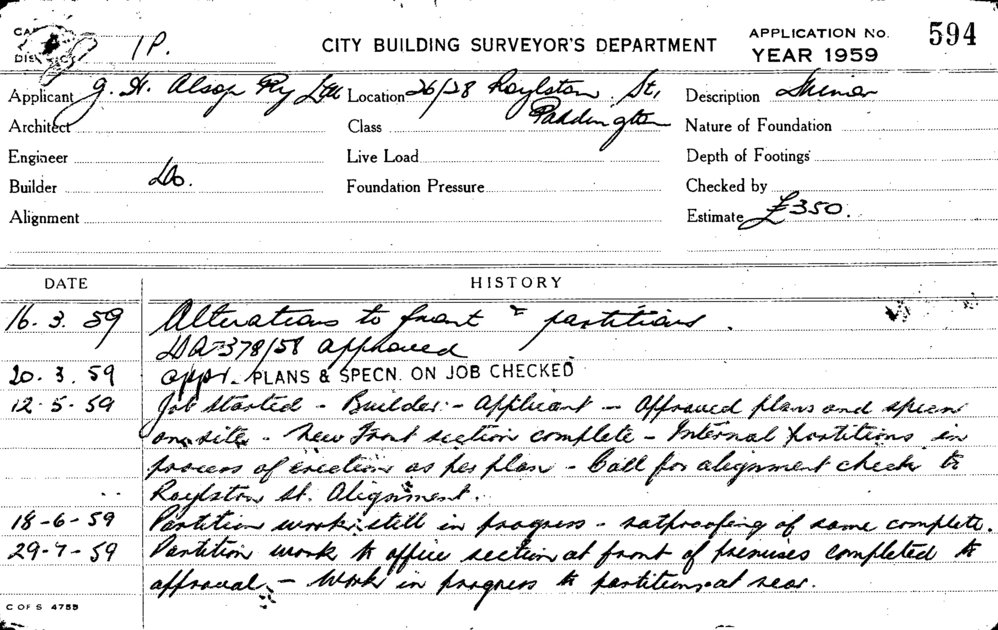 1P.
CITY BUILDING SURVEYOR'S DEPARTMENT
APPLICATION No. 594
YEAR 1959
Applicant G. H. Alsop Pty Ltd Location 26/28 Roylston St,
Paddington
Description Minor
Architect
Class
Nature of Foundation
Engineer
Live Load
Depth of Footings
Builder Do.
Foundation Pressure
Checked by
Alignment
Estimate £350.
DATE HISTORY
16. 3. 59 Alterations to front & partitions.
DA 378/58 approved
20. 3. 59 appr. PLANS & SPECN. ON JOB CHECKED
12-5-59 Job started - Builder - Applicant - Approved plans and specn
on site - New Front section complete - Internal partitions in
process of erection as per plan - Call for alignment check to
Roylston St. Alignment.
18-6-59 Partition work still in progress - ratproofing of same complete.
29-7-59 Partition work to office section at front of premises completed to
approval - Work in progress to partitions at rear.
C OF S 4755